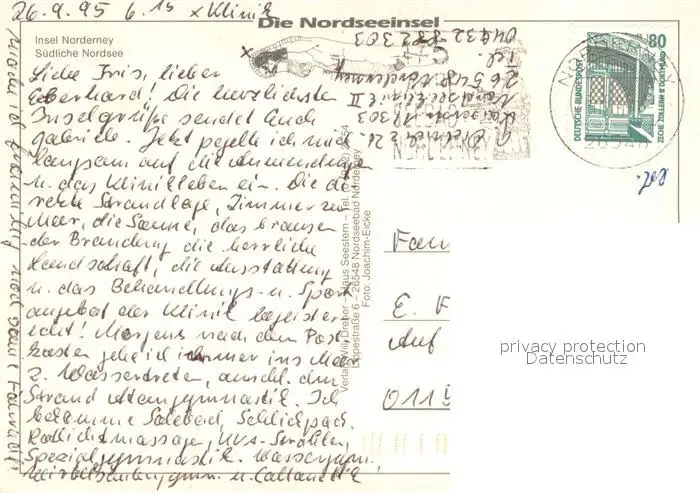 26.9.95 6.15 x Klinik
Die Nordseeinsel
Insel Norderney
Südliche Nordsee
x
Liebe Iris, lieber
Eberhard! Die herzlichsten
Inselgrüße sendet Euch
Gabriele. Jetzt pegelte ich mich
langsam auf die Anwendungen
u. das Klinikleben ein. Die di-
rekte Strandlage, Zimmer zum
Meer, die Sonne, das brausen
der Brandung die herrliche
Landschaft, die Ausstattung
u. das Behandlungs- u. Sport
angebot der Klinik begeistern
echt! Morgens nach dem Post
kasten gehe ich immer ins Meer
z. Wassertreten, anschl. am
Strand Atemgymnastik. Ich
bekomme Solebad, Schlickpack.
Rotlichtmassage, UVA-Strahlen,
Spezialgymnastik, Wassergym.
Wirbelsäulengymn. u. Callanetic
G.
Kaiserstr.
26548 Norderney
Tel.
04932-882303
NORDERNEY
26548
80
DEUTSCHE BUNDESPOST
ZECHE ZOLLERN II DORTMUND
Verlag Willi Dreher – Haus Seestern – Tel.
Lippestraße 6 – 26548 Nordseebad Norderney
Foto: Joachim-Eicke
Fam
E. F
Auf
0119
privacy protection
Datenschutz